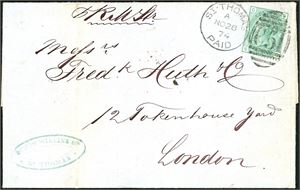 p R.M. Str
ST. THOMAS
A
NO 28
74
PAID
Messrs
Fredk Huth & Co
12 Tokenhouse Yard
London
ST THOMAS